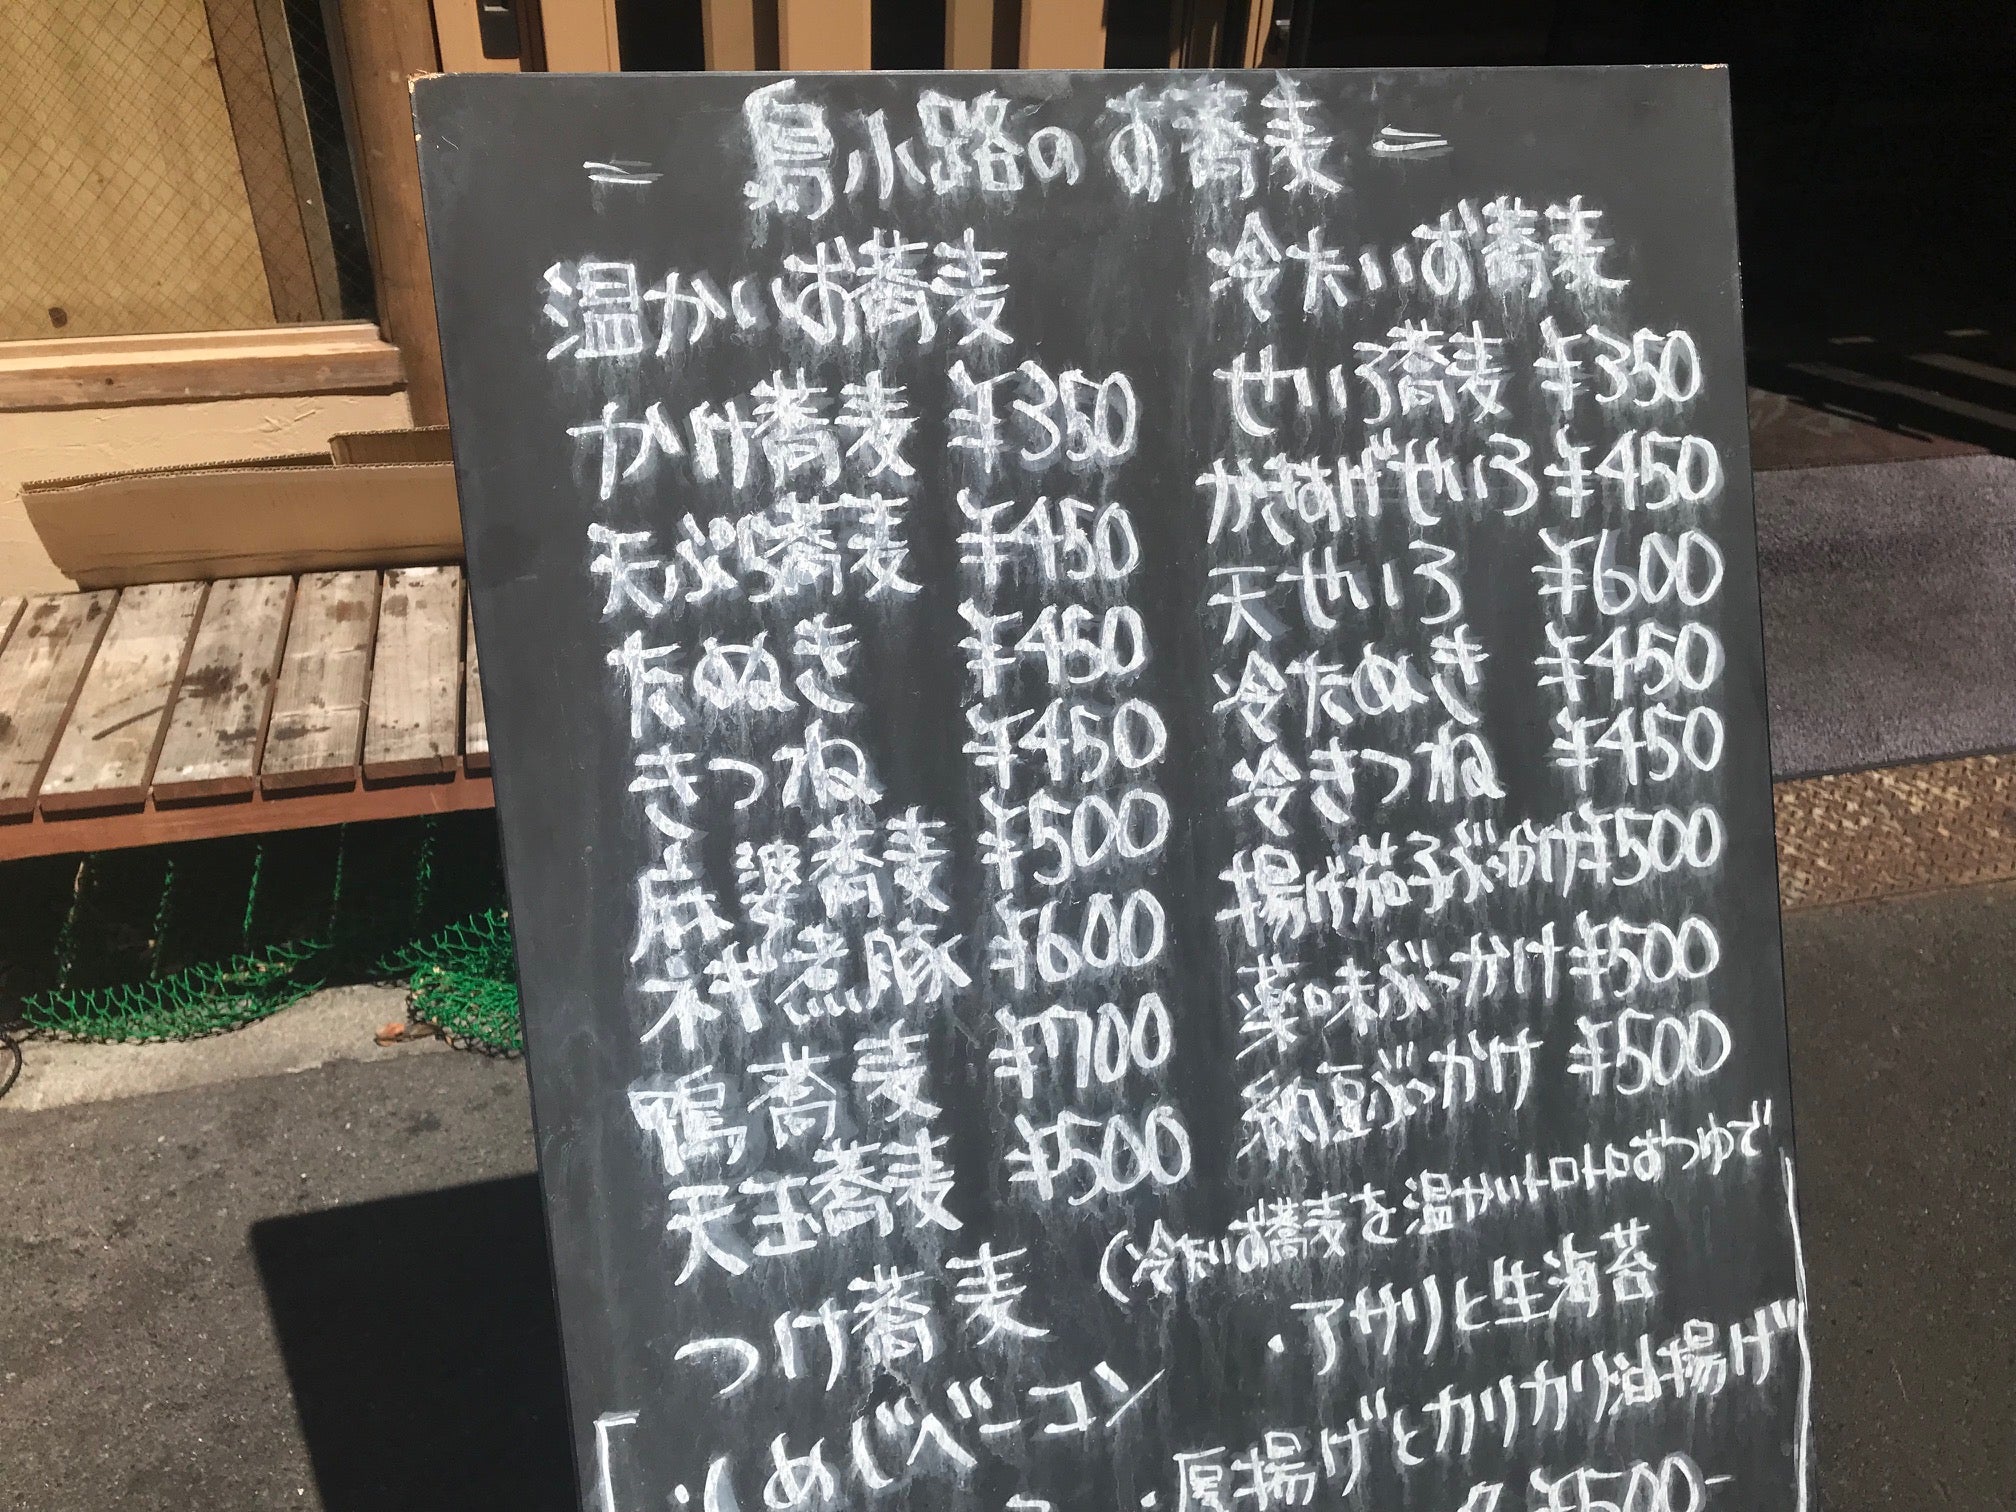 = 島小路のお蕎麦 =
温かいお蕎麦
かけ蕎麦 ¥350
天ぷら蕎麦 ¥450
たぬき ¥450
きつね ¥450
麻婆蕎麦 ¥500
ネギ煮豚 ¥600
鴨蕎麦 ¥700
天玉蕎麦 ¥500
冷たいお蕎麦
せいろ蕎麦 ¥350
かきあげせいろ ¥450
天せいろ ¥600
冷たぬき ¥450
冷きつね ¥450
揚げ茄子ぶっかけ ¥500
薬味ぶっかけ ¥500
納豆ぶっかけ ¥500
つけ蕎麦
(冷たいお蕎麦を温かいトロトロおつゆで
・しめじベーコン
・アサリと生海苔
・厚揚げとカリカリ油揚げ
¥500-